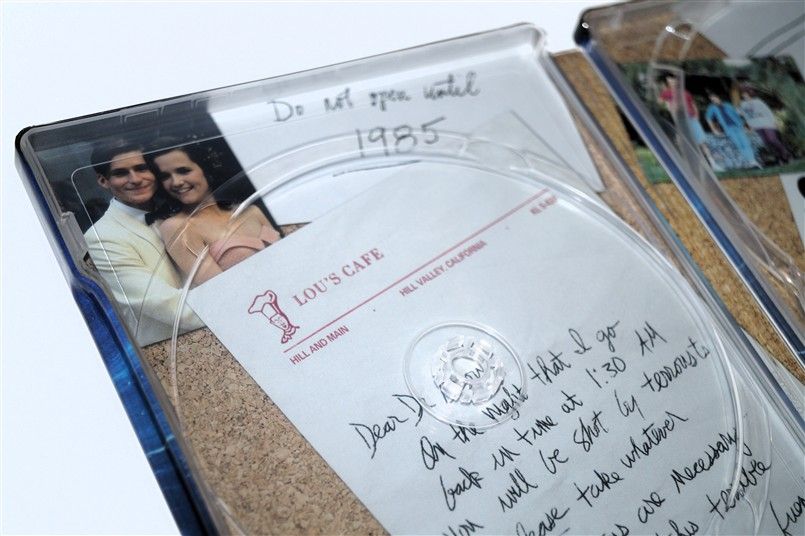 Do not open until
1985
LOU'S CAFE
HILL AND MAIN
HILL VALLEY, CALIFORNIA
Dear Dr.
On the night that I go
back in time at 1:30 AM
you will be shot by terrorists
take whatever
are necessary
this terrible